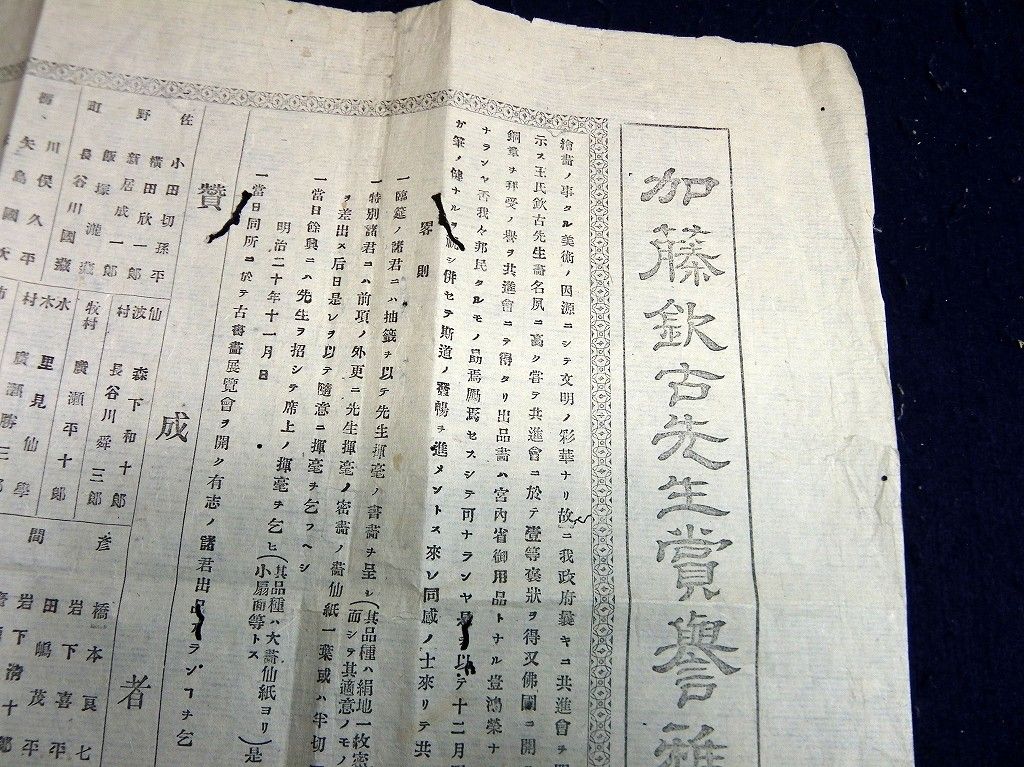 加藤欽古先生賞譽雅
繪畵ノ事タル美術ノ因源ニシテ文明ノ彩華ナリ故ニ我政府曩キニ共進會ヲ
示ス王氏欽古先生畵名夙ニ高ク甞テ共進會ニ於テ壹等褒狀ヲ得又佛國ニ開
銅章ヲ拜受ノ譽ヲ共進會ニテ得タリ出品畵ハ宮內省御用品トナル豈鴻榮ナ
ナランヤ吾我々邦民タルモノ勗焉勵焉セスシテ可ナランヤ是ヲ以テ十二月
カ筆ノ健ナルヲ祝シ併セテ斯道ノ發暢ヲ進メントス來レ同感ノ士來リテ共
畧則
一臨筵ノ諸君ニハ抽籤ヲ以テ先生揮毫ノ書畵ヲ呈シ(其品種ハ絹地一紋
一特別諸君ニハ前項ノ外更ニ先生揮毫ノ密畵ノ畵仙紙一葉或ハ半切
ヲ差出ス后日是レヲ以テ隨意ニ揮毫ヲ乞フヘシ
一當日餘興ニハ先生ヲ招シテ席上ノ揮毫ヲ乞ヒ(其品種ハ大畵仙紙ヨリ小扇面等トス)是
明治二十年十一月 日
一當日同所ニ於テ古書畵展覽會ヲ開ク有志ノ諸君出品アランコヲ乞
贊成者
佐野町
小田切孫平
横田欣一郎
新居成一郎
飯塚瀧
長谷川國藏
川俣久平
矢島國
仙波村
森下和十郎
長谷川舜三郎
牧村
廣瀬平十郎
水木村
里見仙學
廣瀬勝三郎
彥間
橋本良七
岩下喜平
田嶋茂平
岩下淸十郎